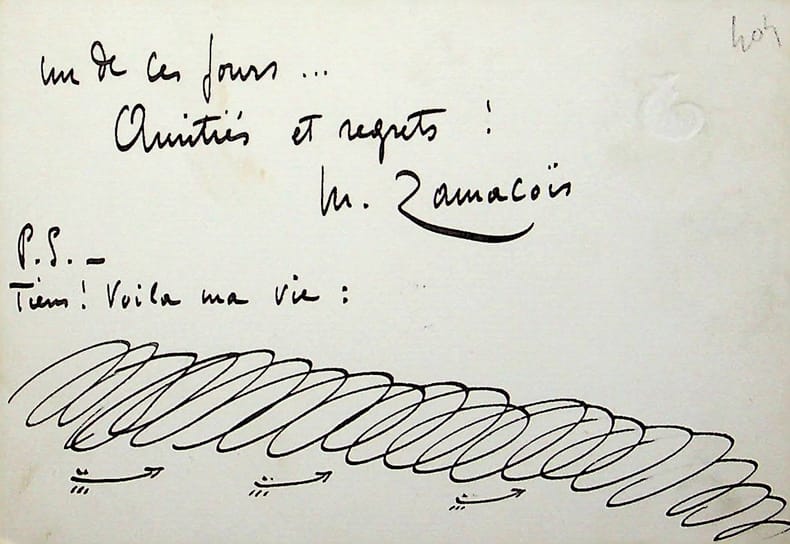 404
un de ces jours...
Amitiés et regrets !
M. Zamacoïs
P.S. —
Tiens ! Voila ma vie :